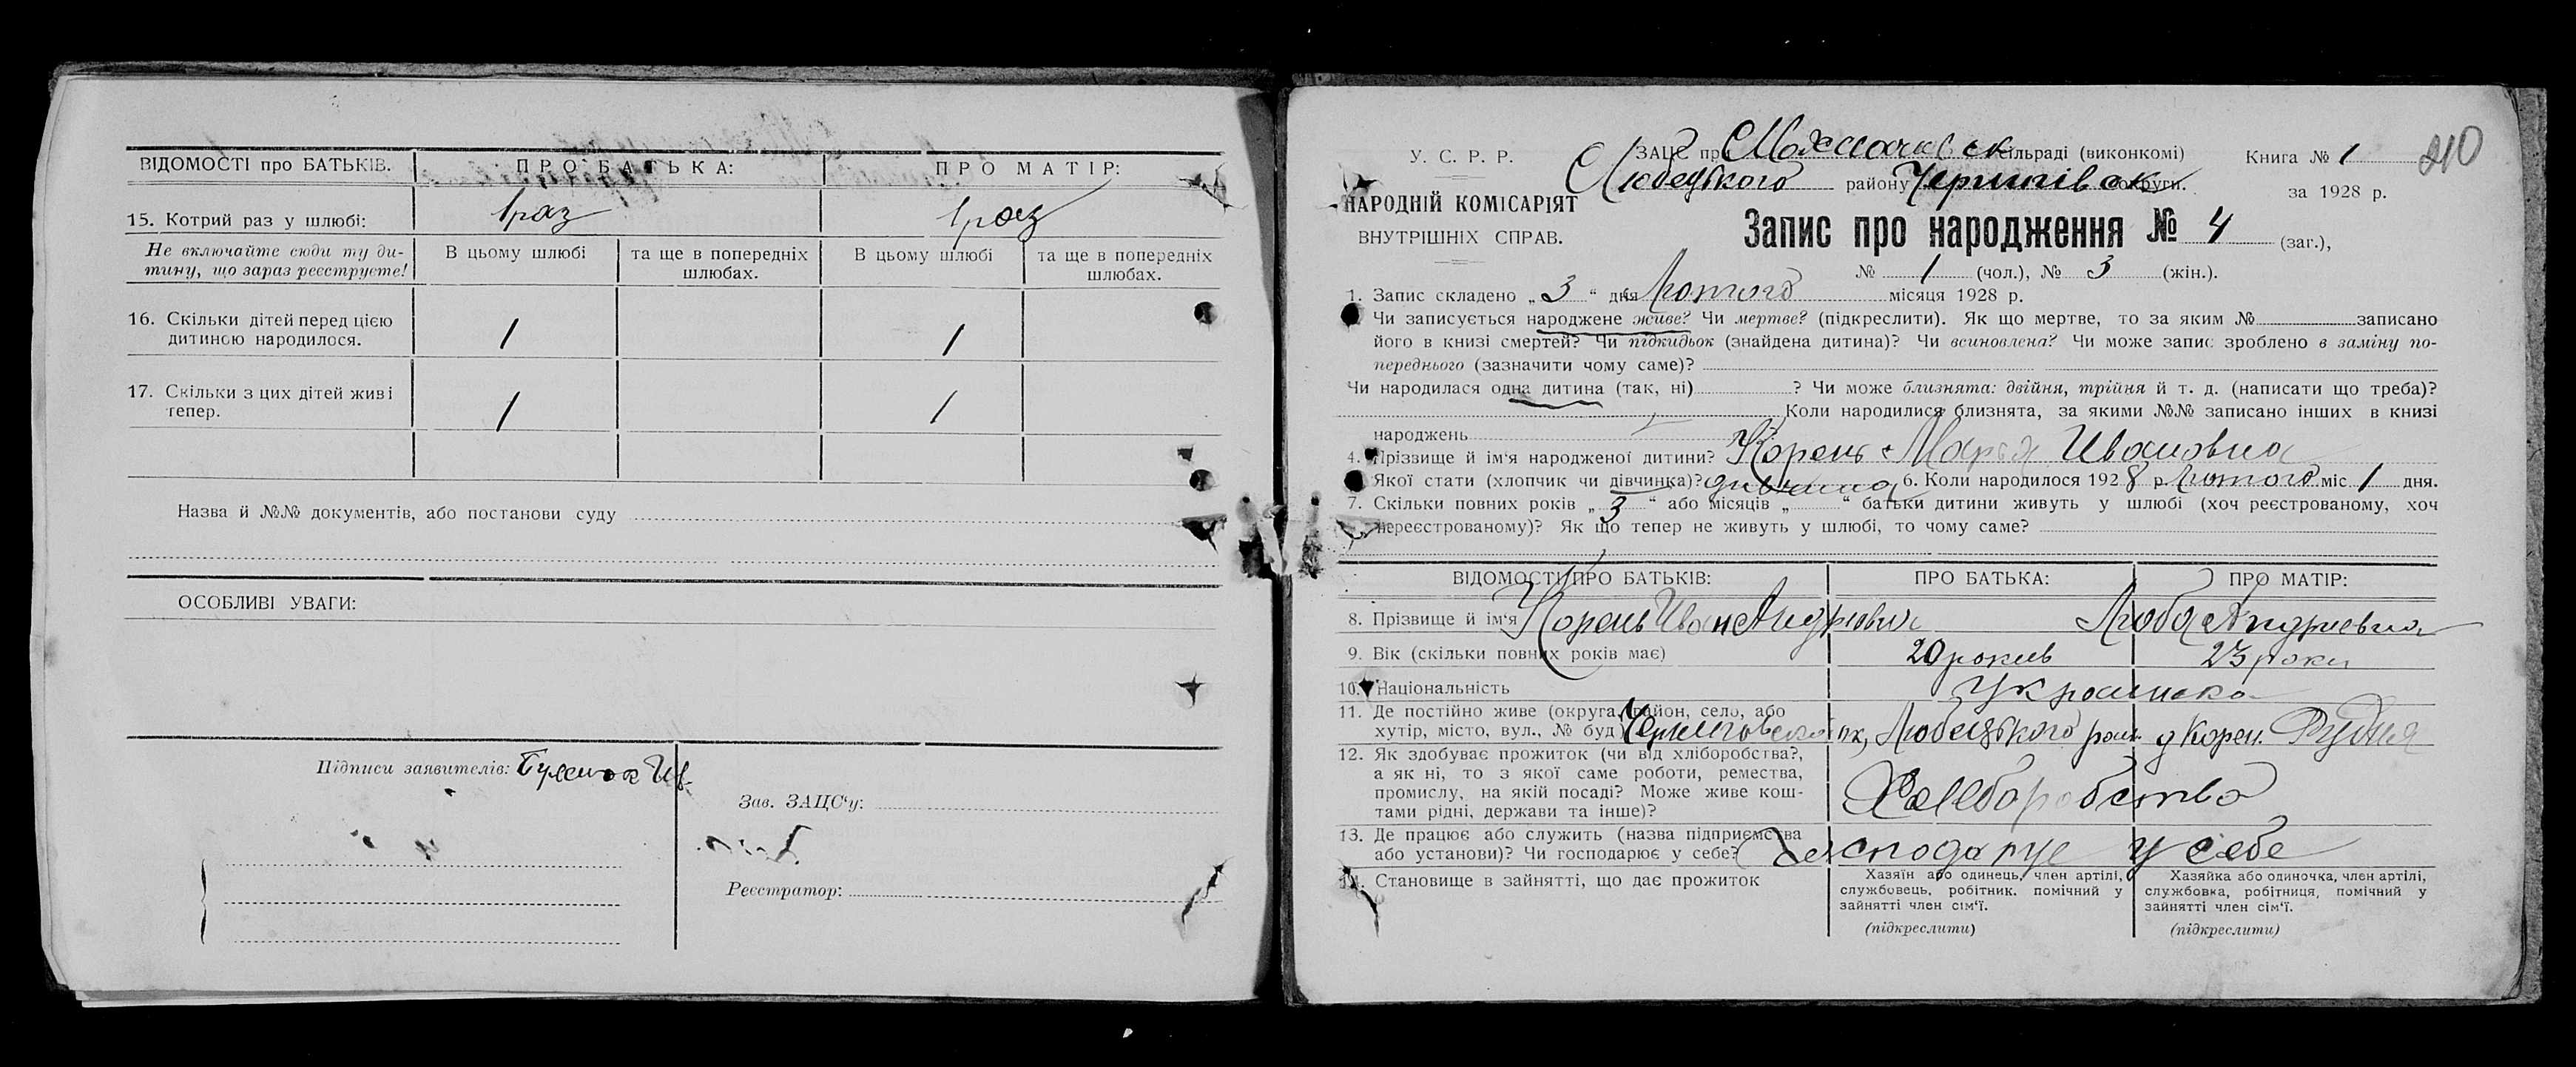 ВІДОМОСТІ про БАТЬКІВ.
ПРО БАТЬКА:
ПРО МАТІР:
15. Котрий раз у шлюбі:
1 раз
1 раз
Не включайте сюди ту ди-
тину, що зараз реєструєте!
В цьому шлюбі
та ще в попередніх
шлюбах.
В цьому шлюбі
та ще в попередніх
шлюбах.
16. Скільки дітей перед цією
дитиною народилося.
1
1
17. Скільки з цих дітей живі
тепер.
1
1
Назва й №№ документів, або постанови суду
ОСОБЛИВІ УВАГИ:
Підписи заявителів:
Зав. ЗАЦС‘у:
Реєстратор:
У. С. Р. Р.
НАРОДНІЙ КОМІСАРІЯТ
ВНУТРІШНІХ СПРАВ.
ЗАЦС пр сільраді (виконкомі)
Любецького району Чернігівськ округи.
Книга № 1
210
за 1928 р.
Запис про народження № 4 (заг.),
№ 1 (чол.), № 3 (жін.).
1. Запис складено „ 3 “ дня Лютого місяця 1928 р.
Чи записується народжене живе? Чи мертве? (підкреслити). Як що мертве, то за яким № записано
його в книзі смертей? Чи підкидьок (знайдена дитина)? Чи всиновлена? Чи може запис зроблено в заміну по-
переднього (зазначити чому саме)?
Чи народилася одна дитина (так, ні) ? Чи може близнята: двійня, трійня й т. д. (написати що треба)?
Коли народилися близнята, за якими №№ записано інших в книзі
народжень
4. Прізвище й ім‘я народженої дитини? Корень Марья Ивановна
Якої стати (хлопчик чи дівчинка)? дивчина 6. Коли народилося 1928 р. Лютого міс. 1 дня.
7. Скільки повних років „ 3 “ або місяців „ “ батьки дитини живуть у шлюбі (хоч реєстрованому, хоч
нереєстрованому)? Як що тепер не живуть у шлюбі, то чому саме?
ВІДОМОСТІ ПРО БАТЬКІВ:
ПРО БАТЬКА:
ПРО МАТІР:
8. Прізвище й ім‘я Корень Иван Андриович Люба Андриевна
9. Вік (скільки повних років має) 20 рокив 23 роки
10. Національність Украинска
11. Де постійно живе (округа, район, село, або
хутір, місто, вул., № буд) Любецького рай. у Корен. Рудня
12. Як здобуває прожиток (чи від хліборобства?,
а як ні, то з якої саме роботи, ремества,
промислу, на якій посаді? Може живе кош-
тами рідні, держави та інше)?
Хлеборобство
13. Де працює або служить (назва підприємства
або установи)? Чи господарює у себе? Господарує у себе
14. Становище в зайнятті, що дає прожиток
Хазяїн або одинець, член артілі,
службовець, робітник, помічний у
зайнятті член сім‘ї.
(підкреслити)
Хазяйка або одиночка, член артілі,
службовка, робітниця, помічний у
зайнятті член сім‘ї.
(підкреслити)